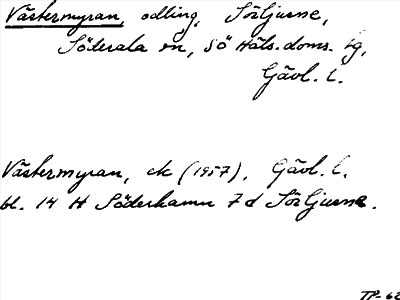 Västermyran, odling, Sörljusne,
Söderala sn, SÖ Häls. doms. sg,
Gävl. l.
Västermyran, ek (1957), Gävl. l.
bl. 14 H Söderhamn 7 d Sörljusne.
TP-62